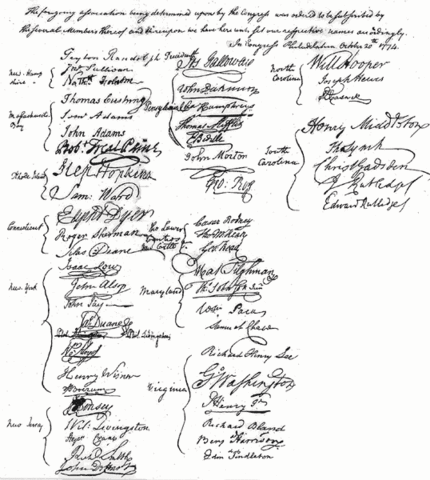 The foregoing association being determined upon by the Congress was ordered to be subscribed by
the several Members thereof and thereupon we have hereunto set our respective names accordingly.
In Congress Philadelphia October 20th 1774.
Peyton Randolph President
New-Hampshire
Jno Sullivan
Nathl Folsom
Massachusetts Bay
Thomas Cushing
Saml Adams
John Adams
Robt Treat Paine
Rhode Island
Step Hopkins
Sam: Ward
Connecticut
Elipht Dyer
Roger Sherman
Silas Deane
New York
Isaac Low
John Alsop
John Jay
Jas Duane
Phil Livingston
Wm Floyd
Henry Wisner
S: Boerum
New Jersey
J Kinsey
Wil: Livingston
Stepn Crane
Richd Smith
John De Hart
Pennsylvania
Jos Galloway
John Dickinson
Cha Humphreys
Thomas Mifflin
E Biddle
John Morton
Geo: Ross
The Lower Counties New Castle
Caesar Rodney
Tho M:Kean
Geo Read
Maryland
Mat Tilghman
Th Johnson Junr
Wm Paca
Samuel Chase
Virginia
Richard Henry Lee
Go Washington
P Henry Jr
Richard Bland
Benj Harrison
Edm Pendleton
North Carolina
Will Hooper
Joseph Hewes
R Caswell
South Carolina
Henry Middleton
Tho Lynch
Christ Gadsden
J Rutledge
Edward Rutledge